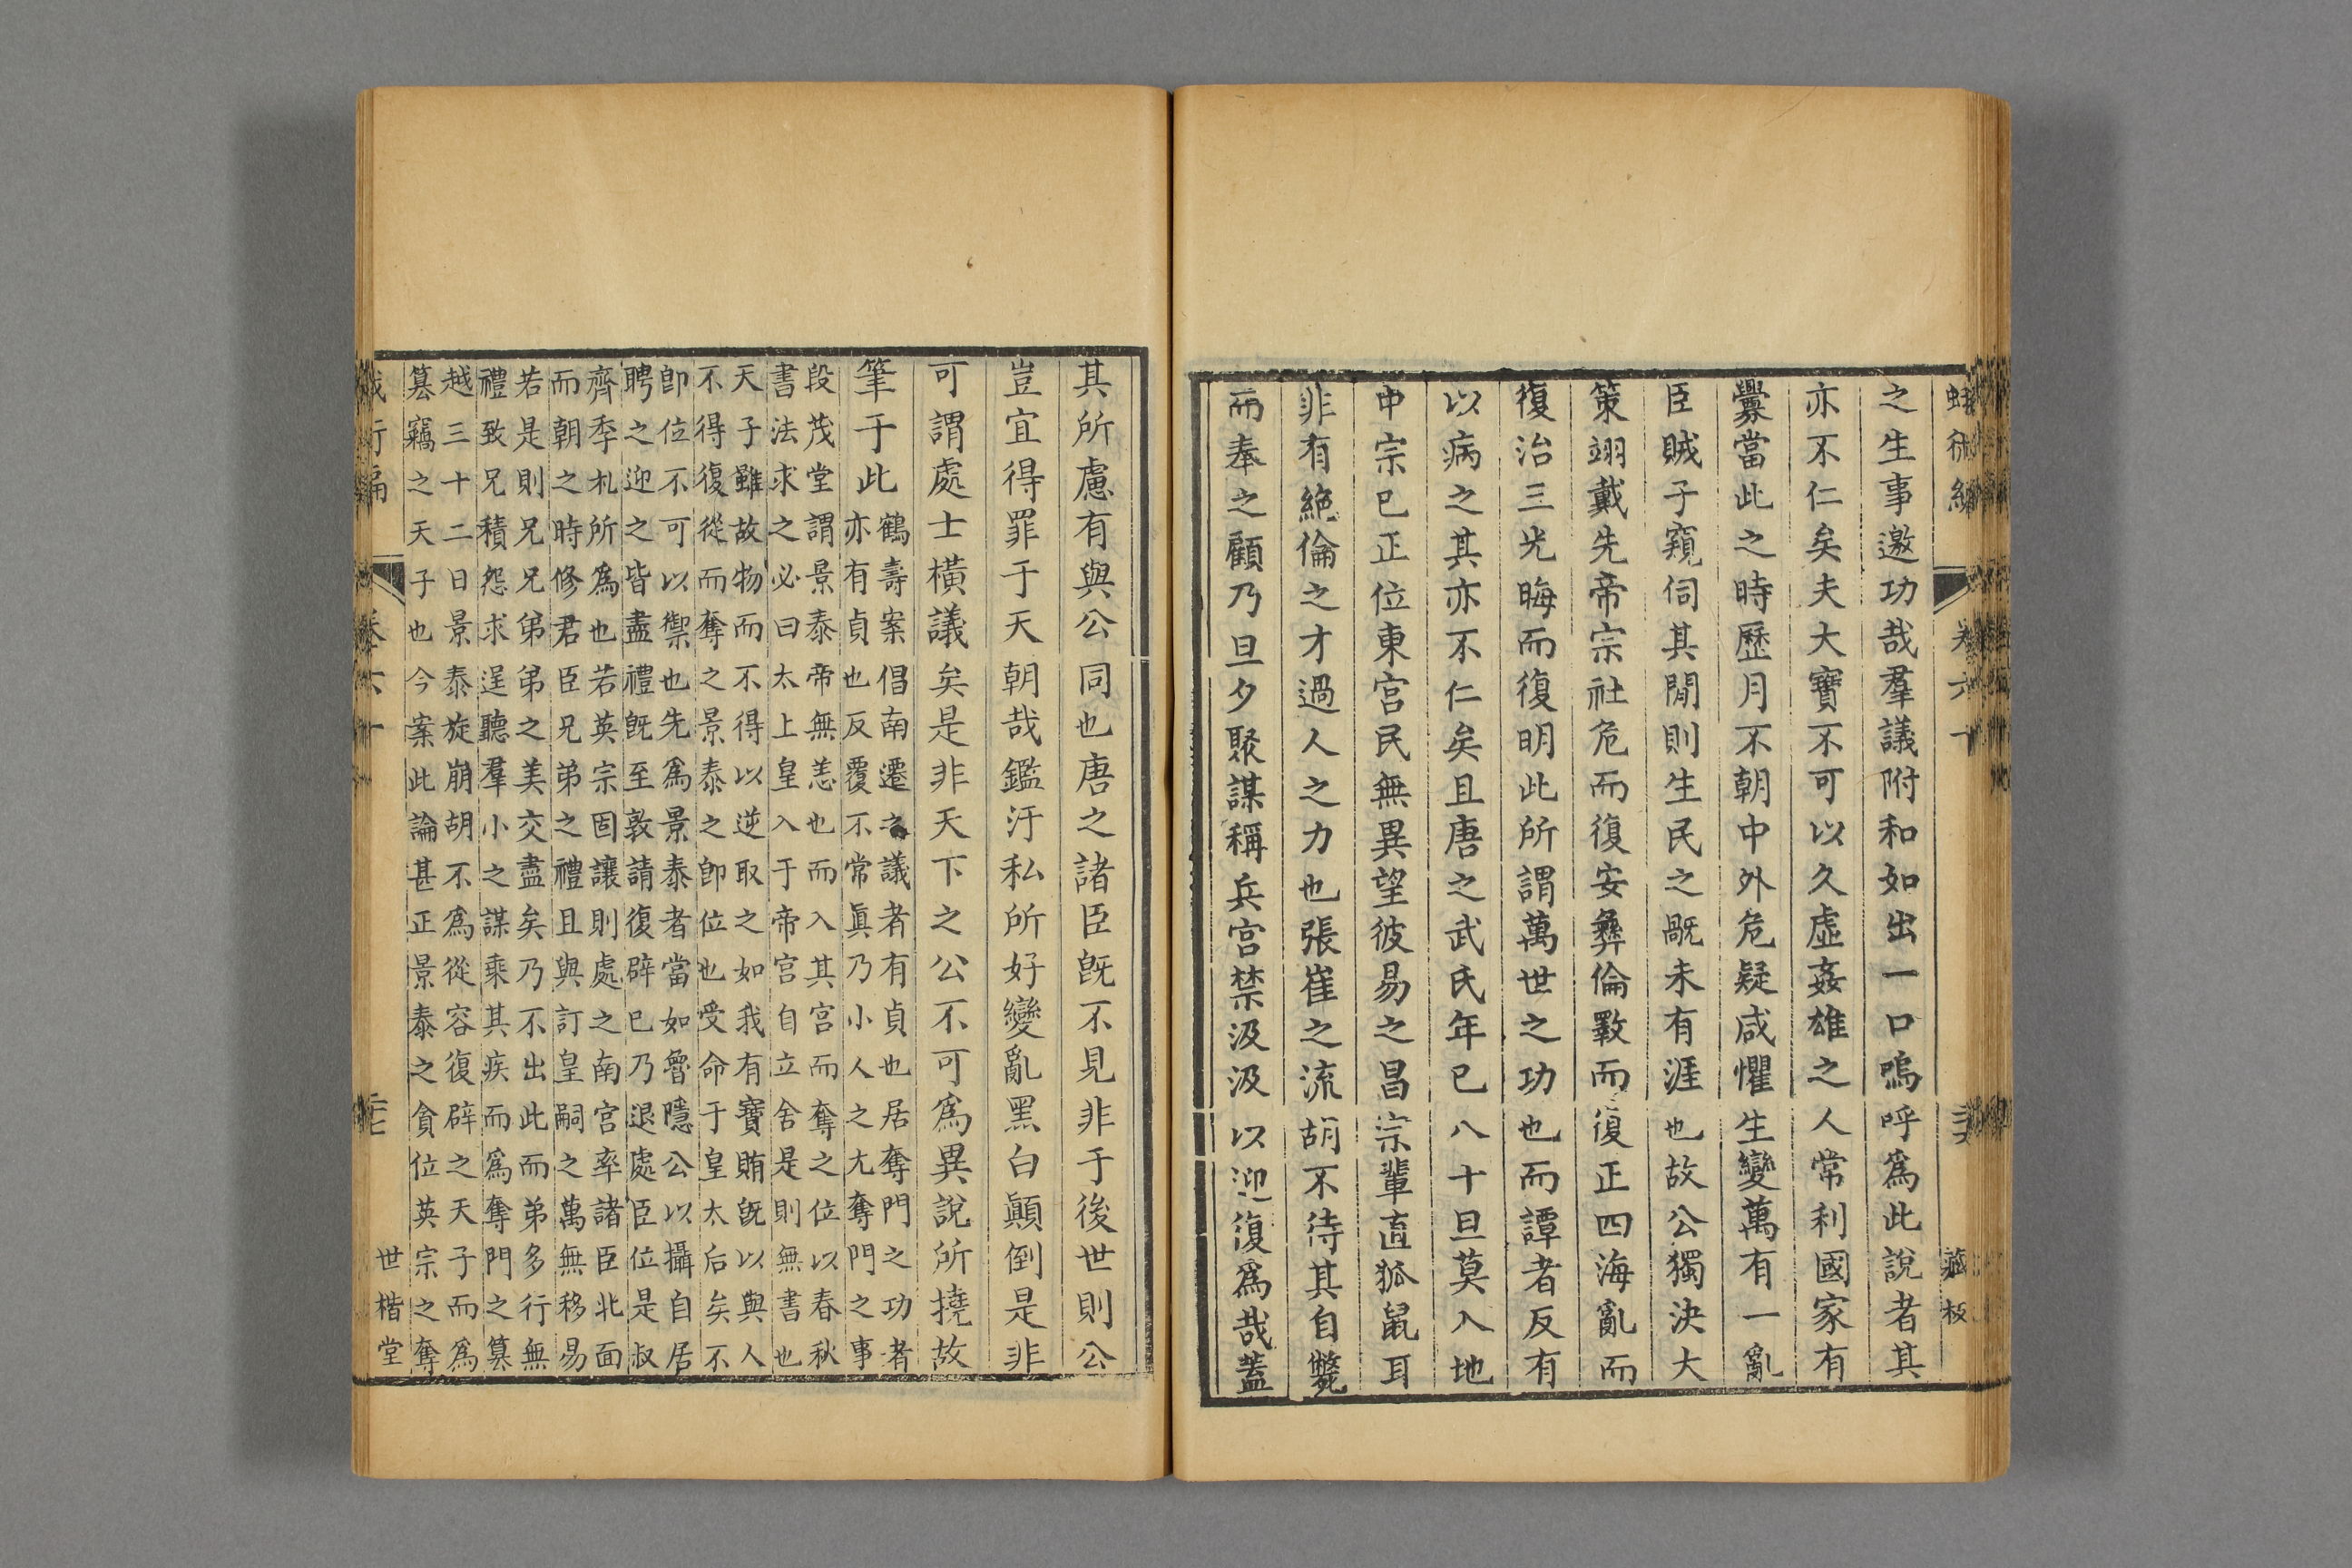 蛾術編 卷六十 世楷堂藏板
之生事邀功哉羣議附和如出一口嗚呼爲此說者其
亦不仁矣夫大寶不可以久虛姦雄之人常利國家有
釁當此之時歷月不朝中外危疑咸懼生變萬有一亂
臣賊子窺伺其閒則生民之戤未有涯也故公獨決大
策翊戴先帝宗社危而復安彝倫斁而復正四海亂而
復治三光晦而復明此所謂萬世之功也而譚者反有
以病之其亦不仁矣且唐之武氏年已八十旦莫入地
中宗已正位東宮民無異望彼易之昌宗輩直狐鼠耳
非有絶倫之才過人之力也張崔之流胡不待其自斃
而奉之顧乃旦夕聚謀稱兵宮禁汲汲以迎復爲哉蓋
其所慮有與公同也唐之諸臣旣不見非于後世則公
豈宜得罪于天朝哉鑑汙私所好變亂黑白顚倒是非
可謂處士橫議矣是非天下之公不可爲異說所撓故
筆于此
鶴壽案倡南遷之議者有貞也居奪門之功者
亦有貞也反覆不常眞乃小人之尤奪門之事
段茂堂謂景泰帝無恙也而入其宮而奪之位以春秋
書法求之必曰太上皇入于帝宮自立舍是則無書也
天子雖故物而不得以逆取之如我有寶賄旣以與人
不得復從而奪之景泰之卽位也受命于皇太后矣不
卽位不可以禦也先爲景泰者當如魯隱公以攝自居
聘之迎之皆盡禮旣至敦請復辟已乃退處臣位是叔
齊季札所爲也若英宗固讓則處之南宮率諸臣北面
而朝之時修君臣兄弟之禮且與訂皇嗣之萬無移易
若是則兄兄弟弟之美交盡矣乃不出此而弟多行無
禮致兄積怨求逞聽羣小之謀乘其疾而爲奪門之篡
越三十二日景泰旋崩胡不爲從容復辟之天子而爲
篡竊之天子也今案此論甚正景泰之貪位英宗之奪
蛾術編 卷六十 世楷堂